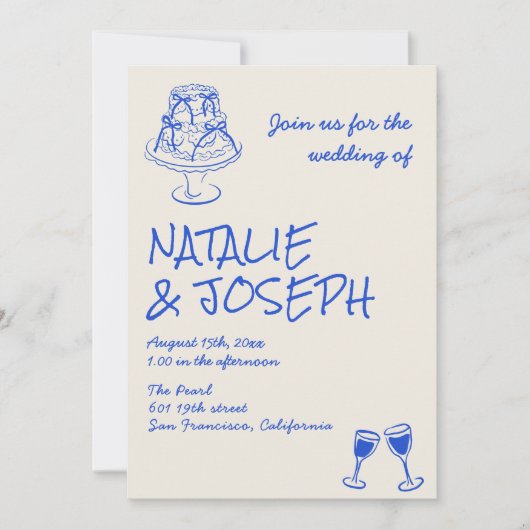 Join us for the
wedding of
NATALIE
& JOSEPH
August 15th, 20xx
1.00 in the afternoon
The Pearl
601 19th street
San Francisco, California